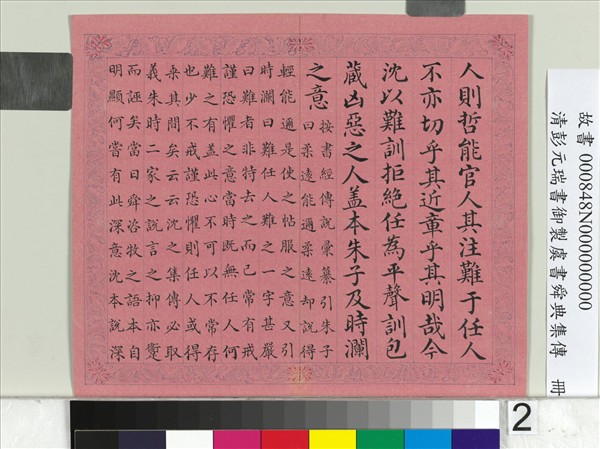 人則哲能官人其注難于任人
不亦切乎其近章乎其明哉今
沈以難訓拒絶任為平聲訓包
藏凶惡之人蓋本朱子及時瀾
之意
按書經傳說彙纂引朱子
曰柔遠能邇柔遠却說得
輕能邇是使之帖服之意又引
時瀾曰難任人難之一字甚嚴
曰難者非特去之而已常有戒
謹恐懼之意當時既無任人何
難之有蓋此心不可以不常存
也少不戒謹恐懼則任人或得
乘其間矣云云沈之集傳必取
義朱時二家之說言之抑亦蹇
而誣矣當日舜咨牧之語本自
明顯何嘗有此深意沈本說深
故書 000848N000000000
清彭元瑞書御製虞書舜典集傳 冊
2